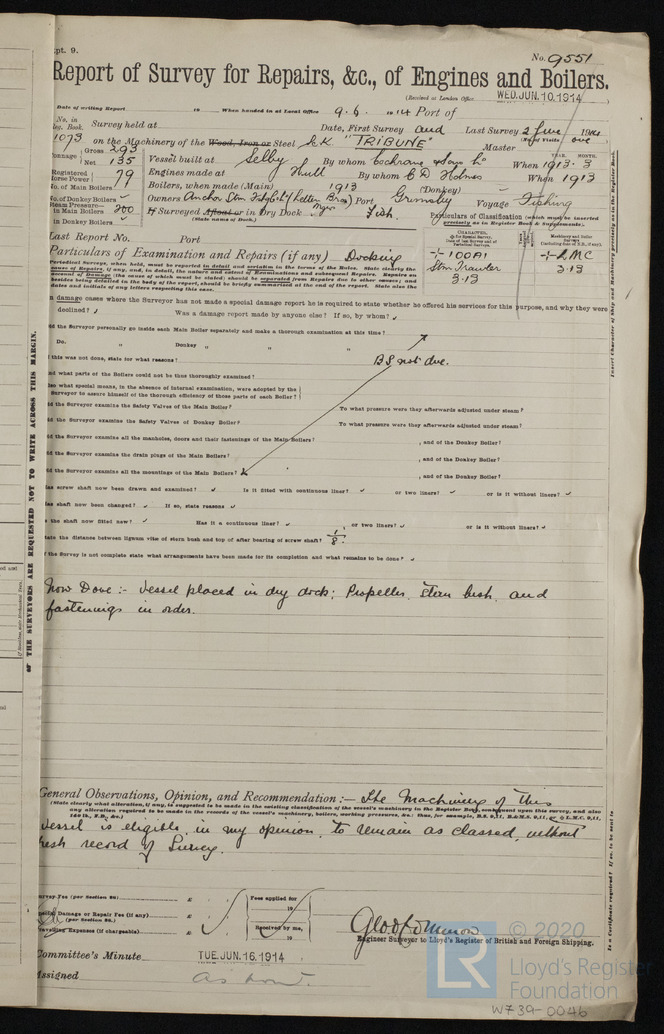 pt. 9.
No. 9551
Report of Survey for Repairs, &c., of Engines and Boilers.
(Received at London Office WED. JUN. 10. 1914
Date of writing Report 19 When handed in at Local Office 9.6.1914 Port of
No. in Survey held at Date, First Survey and Last Survey 2 June 1914
eg. Book.
1073 on the Machinery of the Wood, Iron or Steel S.K. "TRIBUNE" Master (No. of Visits one
Tonnage Gross 293 Net 135 Vessel built at Selby By whom Cochrane & Sons Ld When 1913 · 3
YEAR. MONTH.
Registered Horse Power 79 Engines made at Hull By whom C D Holmes When 1913
No. of Main Boilers Boilers, when made (Main) 1913 (Donkey)
No. of Donkey Boilers Owners Anchor Stm Fishg Co Ld (Letten Bros Mgrs) Port Grimsby Voyage Fishing
Steam Pressure—
in Main Boilers 200 If Surveyed Afloat or in Dry Dock Fish
(State name of Dock.)
in Donkey Boilers
Particulars of Classification (which must be inserted precisely as in Register Book & Supplements).
Last Report No. Port
Particulars of Examination and Repairs (if any) Docking
+100A1
Stm Trawler
3.13
+LMC
3.13
Periodical Surveys, when held, must be reported in detail and seriatim in the forms of the Rules. State clearly the
cause of Repairs, if any; and, in detail, the nature and extent of Examinations and subsequent Repairs. Repairs on
account of Damage (the cause of which must be stated) should be separated from Repairs due to other causes; and
besides being detailed in the body of the report, should be briefly summarised at the end of the report. State also the
dates and initials of any letters respecting this case.
n damage cases where the Surveyor has not made a special damage report he is required to state whether he offered his services for this purpose, and why they were
declined? ✓ Was a damage report made by anyone else? If so, by whom? ✓
id the Surveyor personally go inside each Main Boiler separately and make a thorough examination at this time?
Do. " Donkey " " "
f this was not done, state for what reasons?
BS not due.
nd what parts of the Boilers could not be thoroughly examined?
lso what special means, in the absence of internal examination, were adopted by the
Surveyor to assure himself of the thorough efficiency of those parts of each Boiler?
id the Surveyor examine the Safety Valves of the Main Boiler? To what pressure were they afterwards adjusted under steam?
id the Surveyor examine the Safety Valves of Donkey Boiler? To what pressure were they afterwards adjusted under steam?
id the Surveyor examine all the manholes, doors and their fastenings of the Main Boilers? , and of the Donkey Boiler?
id the Surveyor examine the drain plugs of the Main Boilers? , and of the Donkey Boiler?
id the Surveyor examine all the mountings of the Main Boilers? , and of the Donkey Boiler?
as screw shaft now been drawn and examined? ✓ Is it fitted with continuous liner? ✓ or two liners? ✓ or is it without liners? ✓
as shaft now been changed? ✓ If so, state reasons ✓
s the shaft now fitted new? ✓ Has it a continuous liner? ✓ or two liners? ✓ or is it without liners? ✓
tate the distance between lignum vitæ of stern bush and top of after bearing of screw shaft? 1/8"
f the Survey is not complete state what arrangements have been made for its completion and what remains to be done? ✓
Now Done :- Vessel placed in dry dock; Propeller, stern bush, and
fastenings in order.
General Observations, Opinion, and Recommendation :— The Machinery of this
(State clearly what alteration, if any, is suggested to be made in the existing classification of the vessel's machinery in the Register Book, consequent upon this survey, and also
any alteration required to be made in the records of the vessel's machinery, boilers, working pressures, &c.: thus, for example, B.S. 9,11, B.&M.S. 9,11, or + L.M.C. 9,11,
140 lb., F.D., &c.)
vessel is eligible, in my opinion, to remain as classed, without
fresh record of Survey.
Survey Fee (per Section 29) £ : : Fees applied for
19
pecial Damage or Repair Fee (if any) £ : :
(per Section 29.)
Travelling Expenses (if chargeable) £ : : Received by me,
19
Engineer Surveyor to Lloyd's Register of British and Foreign Shipping.
Committee's Minute TUE. JUN. 16. 1914
Assigned as now.
OF THE SURVEYORS ARE REQUESTED NOT TO WRITE ACROSS THIS MARGIN.
Insert Character of Ship and Machinery precisely as in the Register Book.
Is a Certificate required? If so, to be sent to
© 2020
LR
Lloyd's Register
Foundation
W739-0046